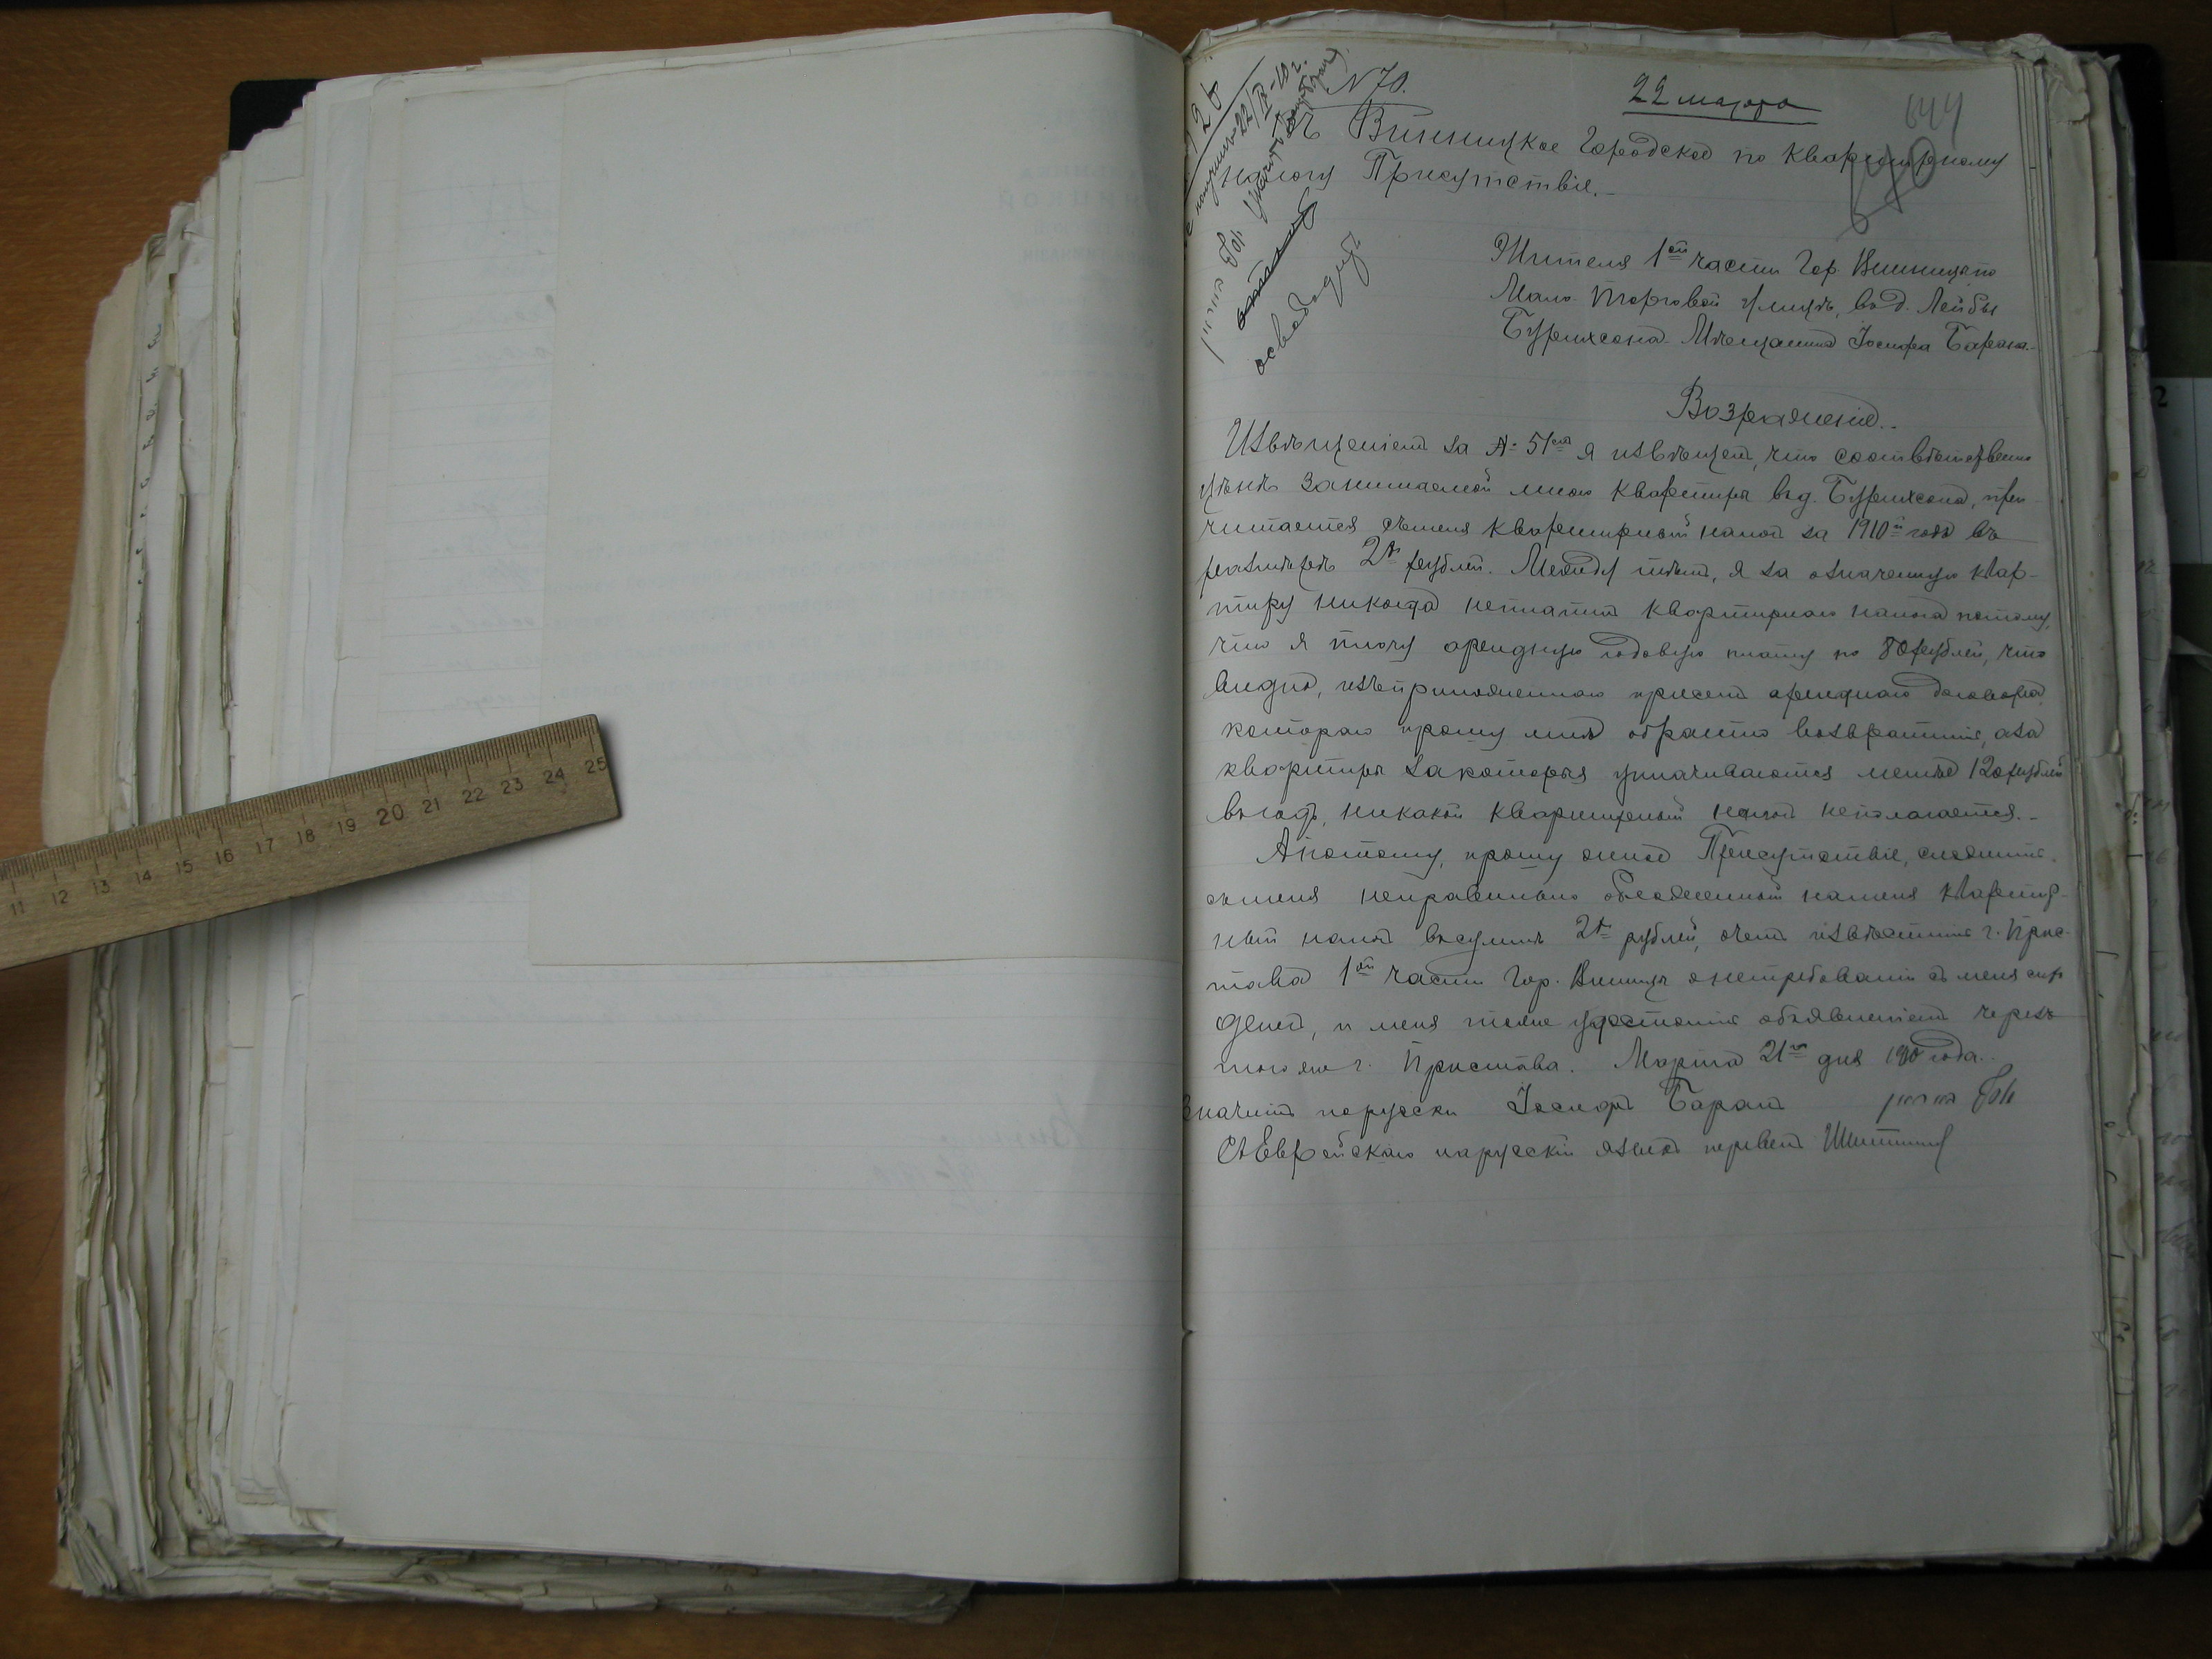 N 70.
22 марта
644
Въ Винницкое Городское по Квартирному
налогу Присутствіе.-
Жителя 1ой части Гор. Винницы по
Мало Торговой улицѣ, въ д. Лейбы
Бурихсона Мѣщанина Іосифа Барана.-
Возраженіе.-
Извѣщеніемъ за № 51ым я извѣщенъ, что соотвѣтственно
цѣнѣ занимаемой мною квартиры въ д. Бурихсона, при-
читается съ меня квартирный налогъ за 1910й годъ въ
размѣрѣ 2хъ рублей. Между тѣмъ, я за означенную квар-
тиру никогда неплатилъ квартирнаго налога потому,
что я плачу арендную годовую плату по 80 рублей, что
видно, изъ приложеннаго присемъ аренднаго договора,
котораго прошу мнѣ обратно возвратить, а за
квартиры за которыя уплачиваются менѣе 120 рублей
въ годъ, никакой квартирный налогъ неполагается.-
А потому, прошу оное Присутствіе, сложить
съ меня неправильно обложенный на меня квартир-
ный налогъ въ суммѣ 2хъ рублей, о чемъ извѣстить г. Прис-
тава 1ой части Гор. Винницы о нетребованіи съ меня сихъ
денегъ, и меня также удостоить объявленіемъ черезъ
того же г. Пристава. Марта 21го дня 1910 года.
Значитъ по русски Іосифъ Баранъ
Съ Еврейскаго на русскій языкъ перевелъ
освободить
11 12 13 14 15 16 17 18 19 20 21 22 23 24 25